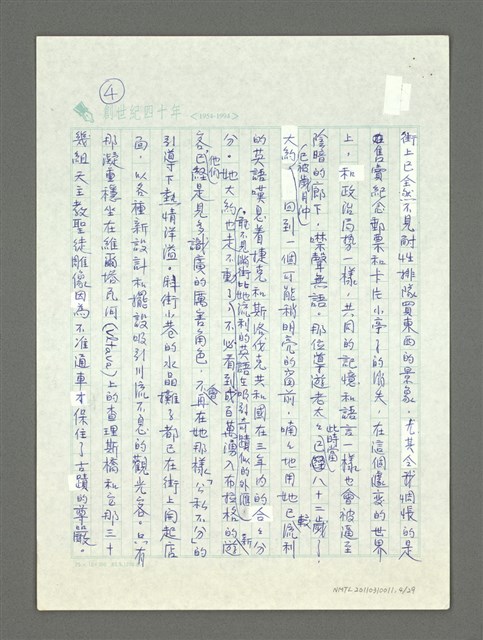 ④
創世紀四十年 <1954-1994>
街上已全然不見耐性排隊買東西的景象,尤其令我惆悵的是
在售賣紀念郵票和卡片小亭子的消失,在這個處變的世界
上,和政治局勢一樣,共同的記憶和語言一樣也會被逼至
陰暗的廊下,噤聲無語,那位導遊老太太此時當已八十二歲了,
大約已被歲月沖回到一個可能稍明亮的窗前,喃喃地用她已流利
的英語嘆息着捷克和斯洛伐克共和國在三年內的合合分
分。她大約也走不動了,不必看到成百萬湧入布拉格的新遊
客他們已經是見多識廣的厲害角色,不會再在她那樣「公私不分」的
引導下熱情洋溢。斜街小巷的水晶攤子都已在街上開起店
面,以各種新設計和擺設吸引川流不息的觀光客。只有
那凝重穩坐在維爾塔瓦河(Vltava)上的查理斯橋和它那三十
幾組天主教聖徒雕像因為不准通車才保住了古蹟的尊嚴。
NMTL20110310011, 4/29